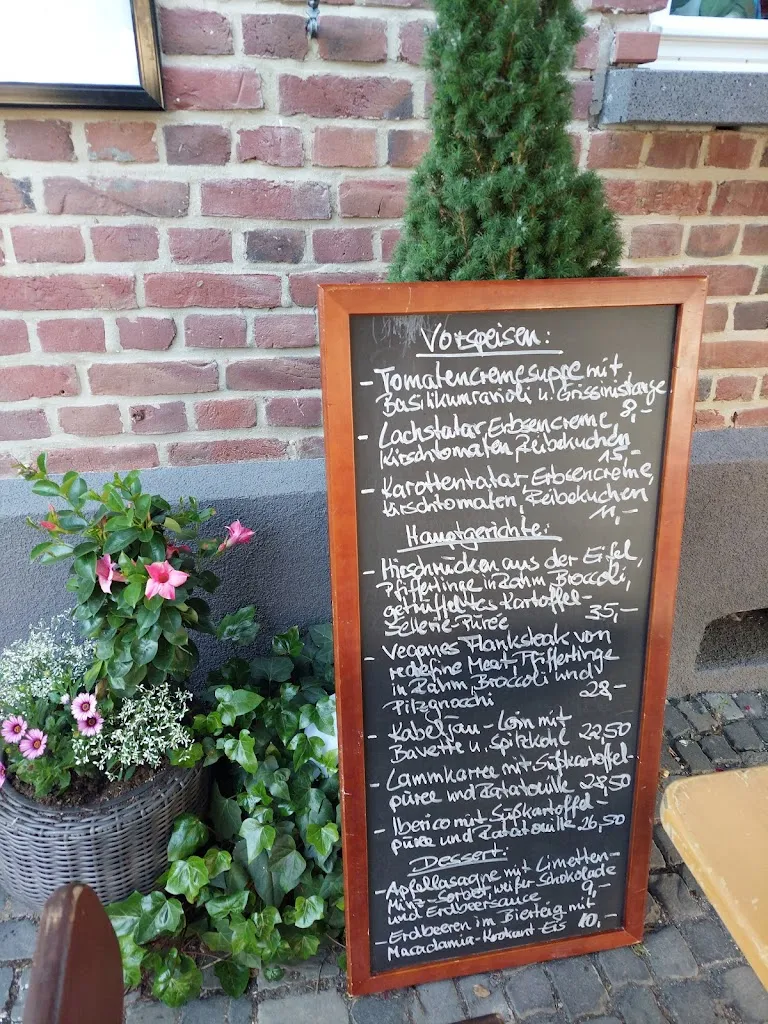 Vorspeisen:
- Tomatencremesuppe mit
Basilikumravioli u. Grissinistange
8,-
- Lachstatar, Erbsencreme,
Kirschtomaten, Reibekuchen
15,-
- Karottentatar, Erbsencreme,
Kirschtomaten, Reibekuchen
11,-
Hauptgerichte:
- Hirschrücken aus der Eifel,
Pfifferlinge in Rahm, Broccoli,
getrüffeltes Kartoffel-
Sellerie-Püree 35,-
- Veganes Flanksteak von
redefine Meat, Pfifferlinge
in Rahm, Broccoli und
Pilzgnocchi 28,-
- Kabeljau-Loin mit
Bavette u. Spitzkohl 22,50
- Lammkarree mit Süßkartoffel-
püree und Ratatouille 28,50
- Iberico mit Süßkartoffel-
püree und Ratatouille 26,50
Dessert:
- Apfellasagne mit Limetten-
Minz-Sorbet, weißer Schokolade
und Erdbeersauce 9,-
- Erdbeeren im Bierteig mit
Macadamia-Krokant Eis 10,-